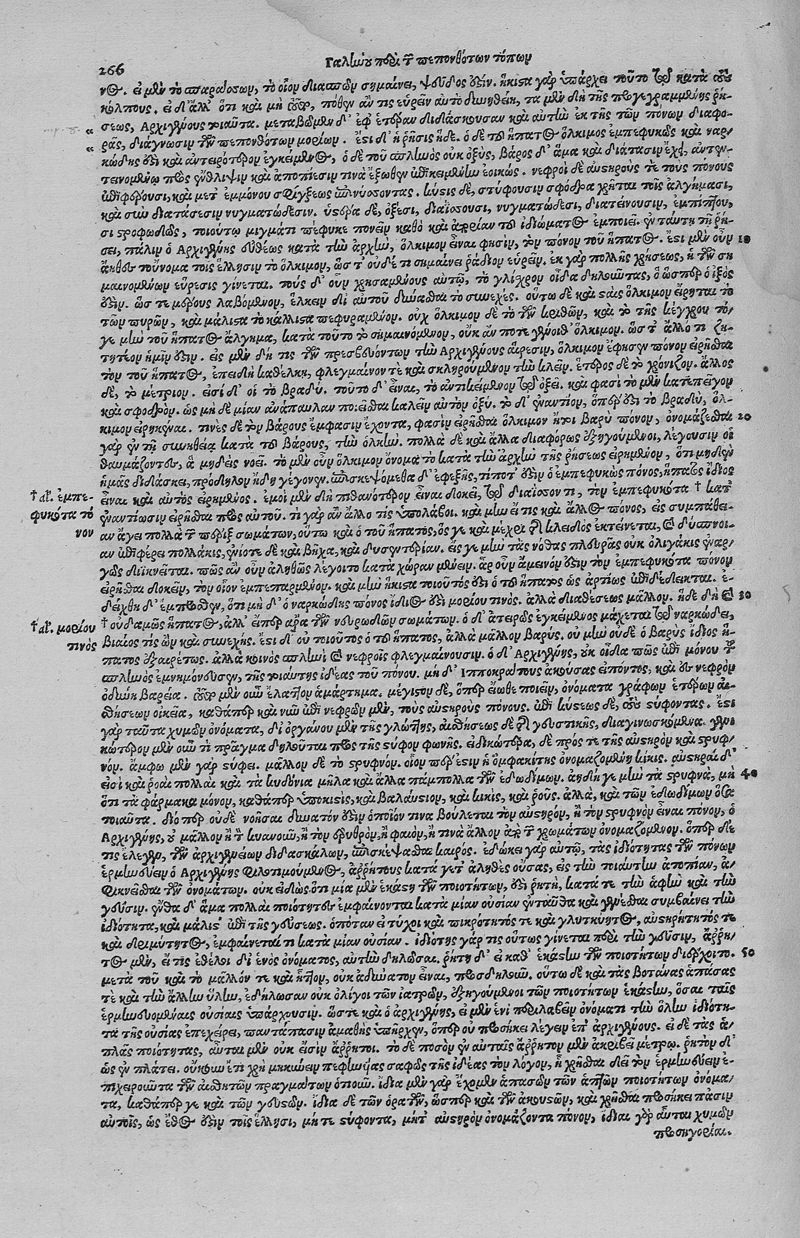 266 Γαληνοῦ περὶ τῶν πεπονθότων τόπων
νος. εἰ μὲν τὸ σπαραῖσσων, τὸ οἷον διασπῶν σημαίνει, ψεῦδός ἐστιν. ἥκιστα γὰρ ὑπάρχει τοῦτο τοῖς κατὰ τοὺς
κόλπους. εἰ δ' ἄλλ' ὅτι καὶ μὴ πόθεν ἄν τις εὑρεῖν αὐτὸ δυνηθείη, τὰ μὲν δὴ τῆς προγεγραμμένης ῥή-
σεως, Ἀρχιγένους τοιαῦτα. μεταβῶμεν δ' ἐφ' ἑτέραν διδάσκουσαν καὶ αὐτὴν ἐκ τῆς τῶν πόνων διαφο-
ρᾶς, διάγνωσιν τῶν πεπονθότων μορίων. ἔστι δ' ἡ ῥῆσις ἥδε. ὁ δὲ τοῦ ἥπατος ὅλκιμος ἐμπεφυκὼς καὶ ναρ-
κώδης ἐστὶ καὶ ἀτειρότερον ἐγκείμενος, ὁ δὲ τοῦ σπληνὸς οὐκ ὀξὺς, βάρος δ' ἅμα καὶ διάτασιν ἔχει, ἀντεν-
τεινομένῳ πως ἔνθλιψιν καὶ ἀποπίεσίν τινα ἔξωθεν ἐπικειμένην ἐοικώς. νεφροὶ δὲ αὐστηρούς τε τοὺς πόνους
ἐπιφέρουσι, καὶ μετ' ἐμμόνου σφίγξεως ὑπονύσσοντας. κύστις δὲ, στύφουσιν σφόδρα χρῆται τοῖς ἀλγήμασι,
καὶ σὺν διατάσεσιν νυγματώδεσιν. ὑστέρα δὲ, ὀξέσι, διαΐσσουσι, νυγματώδεσι, διατείνουσιν, ἐμπίπτου-
σι στροφώδως, τοιούτῳ μίγματι πέφυκε πονεῖν καθὸ καὶ ἀπορίαν τοῦ ἰδιώματος ἐμποιεῖ. ἐν ταύτῃ τῇ ῥή-
σει, πάλιν ὁ Ἀρχιγένης εὐθέως κατὰ τὴν ἀρχὴν, ὅλκιμον εἶναί φησιν, τὸν πόνον τοῦ ἥπατος. ἔστι μὲν οὖν 10
ἄηθες τοὔνομα τοῖς ἕλλησιν τὸ ὅλκιμον, ὥστ' οὐδέ τι σημαίνει ῥᾴδιον εὑρεῖν. ἐκ γὰρ πολλῆς χρήσεως, ἡ τῶν ση
μαινομένων εὕρεσις γίνεται. τοὺς δ' οὖν χρησαμένους αὐτῷ, τὸ γλίσχρον οἶδα δηλοῦντας, ὁ ὥσπερ ὁ ἰξὸς
ἐστιν. ὥστε μέρους λαβόμενον, ἕλκειν ἐπὶ αὐτοῦ δύνασθαι τὸ συνεχές. οὕτω δὲ καὶ σταῖς ὅλκιμον εἴρηται τὸ
τῶν πυρῶν, καὶ μάλιστα τὸ κάλλιστα πεφυραμένον. οὐχ ὅλκιμον δὲ τὸ τῶν κριθῶν, καὶ τὸ τῆς κέγχρου τό-
γε μὴν τοῦ ἥπατος ἄλγημα, κατὰ τοῦτο τὸ σημαινόμενον, οὐκ ἄν ποτε γένοιθ' ὅλκιμον. ὥστ' ἄλλο τι ζη-
τητέον ἡμῖν ἐστιν. εἷς μὲν δή τις τῶν πρεσβευόντων τὴν Ἀρχιγένους αἵρεσιν, ὅλκιμον ἔφησεν πόνον εἰρῆσθαι
τὸν τοῦ ἥπατος, ἐπειδὴ καθέλκει, φλεγμαίνον τε καὶ σκληρούμενον τὴν κλεῖν. ἕτερος δὲ τὸν χρονίζον. ἄλλος
δὲ, τὸν μέτριον. εἰσὶ δ' οἱ τὸ βραδύ. τοῦτο δ' εἶναι, τὸ ἀντικείμενον τῷ ὀξεῖ. καὶ φασὶ τὸ μὲν κατεπεῖγον
καὶ σφοδρὸν, ὡς μὴ δὲ μίαν ἀνάπαυλαν ποιεῖσθαι καλεῖν αὐτὸν ὀξύ. τὸ δ' ἐναντίον, ὅπερ ἐστὶ τὸ βραδὺ, ὅλ-
κιμον εἰρηκέναι. τινὲς δὲ τὸν βάρους ἔμφασιν ἔχοντα, φασὶν εἰρῆσθαι ὅλκιμον ἤτοι βαρὺ πόνον, ὀνομάζεσθαι 20
γὰρ ἐν τῇ συνηθείᾳ κατὰ τοῦ βάρους, τὴν ὁλκήν. πολλὰ δὲ καὶ ἄλλα διαφόρως ἐξηγούμενοι, λέγουσιν οἱ
θαυμάζοντες, ἃ μηδεὶς νοεῖ. τὸ μὲν οὖν ὅλκιμον ὄνομα τὸ κατὰ τὴν ἀρχὴν τῆς ῥήσεως εἰρημένον, ὅτι μηδὲν
ἡμᾶς διδάσκει, πρόδηλον ἤδη γέγονεν. ἐπισκεψώμεθα δ' ἐφεξῆς, τί ποτ' ἐστὶν ὁ ἐμπεφυκὼς πόνος, ἥπατος ἴδιος
εἶναι καὶ αὐτὸς εἰρημένος. ἐμοὶ μὲν δὴ πιθανώτερον εἶναι δοκεῖ, τῷ διαΐσσοντι, τὸν ἐμπεφυκότα † κατ'
ἐναντίωσιν εἰρῆσθαι πρὸς αὐτοῦ. τί γὰρ ἂν ἄλλο τις ὑπολάβοι. καὶ μὴν εἴ τις καὶ ἄλλος πόνος, εἰς συμπάθει-
αν ἄγει πολλὰ τῶν πέριξ σωμάτων, οὕτω καὶ ὁ τοῦ ἥπατος, ὅς γε καὶ μέχρι τῆς κλειδὸς ἐκτείνεται, καὶ δύσπνοι-
αν ἐπιφέρει πολλάκις, ἐνίοτε δὲ καὶ βῆχα, καὶ δυσεντερίαν. εἴς γε μὴν τὰς νόθας πλευρὰς οὐκ ὀλιγάκις ἐναρ-
γῶς διϊκνεῖται. πῶς ἂν οὖν ἀληθῶς λέγοιτο κατὰ χώραν μένειν. ἆρ' οὖν ἄμεινόν ἐστιν τὸν ἐμπεφυκότα πόνον
εἰρῆσθαι δοκεῖν, τὸν οἷον ἐμπεπαρμένον. καὶ μὴν ἥκιστα τοιοῦτός ἐστι ὁ τοῦ ἥπατος ὡς ἀρτίως ἐπιδέδεικται. ἐ-
δείχθη δ' ἔμπροσθεν, ὅτι μὴ δ' ὁ ναρκώδης πόνος ἴδιός ἐστι μορίου τινὸς, ἀλλὰ διαθέσεως μᾶλλον. ἤδε δὴ καὶ 30
† οὐδαμῶς ἥπατος, ἀλλ' εἴπερ ἄρα τῶν νευρωδῶν σωμάτων. ὁ δ' ἀτειρῶς ἐγκείμενος μάχεται τῷ ναρκώδει,
βίαιός τις ὢν καὶ συνεχής. ἔστι δ' οὐ τοιοῦτος ὁ τοῦ ἥπατος, ἀλλὰ μᾶλλον βαρύς. οὐ μὴν οὐδὲ ὁ βαρὺς ἴδιος ἥ-
πατος ἐξαιρέτως. ἀλλὰ κοινὸς σπληνὶ καὶ νεφροῖς φλεγμαίνουσιν. ὁ δ' Ἀρχιγένης, οὐκ οἶδα πῶς ἐπὶ μόνου τοῦ
σπληνὸς ἐμνημόνευσεν, τῆς τοιαύτης ἰδέας τοῦ πόνου. μὴ δ' Ἱπποκράτους ἀκούσας εἰπόντος, καὶ ἐν νεφρῷ
ὀδύνη βαρεῖα. τοῦτο μὲν οὖν ἔλαττον ἁμάρτημα. μέγιστον δὲ, ὅπερ εἴωθε ποιεῖν, ὀνόματα γράφων ἑτέρων αἰ-
σθήσεων οἰκεῖα, καθάπερ καὶ νῦν ἐπὶ νεφρῶν μὲν, τοὺς αὐστηροὺς πόνους. ἐπὶ κύστεως δὲ, τοὺς στύφοντας. ἔστι
γὰρ ταῦτα χυμῶν ὀνόματα, δι' ὀργάνου μὲν τῆς γλώττης, αἰσθήσεως δὲ τῆς γευστικῆς, διαγινωσκόμενα. γενι
κώτερον μὲν οὖν τι πρᾶγμα δηλοῦται πρὸς τῆς στύφον φωνῆς. εἰδικώτερα, δὲ πρός τε τῆς αὐστηρὸν καὶ στρυφ-
νόν. ἄμφω μὲν γὰρ στύφει. μᾶλλον δὲ τὸ στρυφνόν. οἷόν πέρ ἐστιν ἡ ὀμφακίτης ὀνομαζομένη κικίς. αὐστηραὶ δ'
εἰσὶ καὶ ῥοαὶ πολλαὶ καὶ τὰ κυδώνια μῆλα καὶ ἄλλα πάμπολλα τῶν ἐδωδίμων. ἀηδῆ γε μὴν τὰ στρυφνὰ, μὴ 40
ὅτι τὰ φάρμακα μόνον, καθάπερ ὑποκιστὶς, καὶ βαλαύστιον, καὶ κικὶς, καὶ ῥοῦς. ἀλλὰ, καὶ τῶν ἐδωδίμων ὅσα
τοιαῦτα. διόπερ οὐδὲ νοῆσαι δυνατόν ἐστιν ὁποῖόν τινα βούλεται τὸν αὐστηρὸν, ἢ τὸν στρυφνὸν εἶναι πόνον, ὁ
Ἀρχιγένης, οὐ μᾶλλον ἢ τὸν κυανοῦν, ἢ τὸν ἐρυθρὸν, ἢ φαιὸν, ἤ τινα ἄλλον ἀπὸ τῶν χρωμάτων ὀνομαζόμενον. ὅπερ δέ
τις ἔλεγεν, τῶν ἀρχιγενείων διδασκάλων, ἐπισκέψασθαι καιρός. ἐδόκει γὰρ αὐτῷ, τὰς ἰδιότητας τῶν πόνων
ἑρμηνεύειν ὁ Ἀρχιγένης φιλοτιμούμενος, ἀρρήτους κατά γε τ' ἀληθὲς οὔσας, εἰς τὴν τοιαύτην ἀτοπίαν, ἀ-
φικνεῖσθαι τῶν ὀνομάτων. οὐκ εἰδὼς ὅτι μία μὲν ἑκάστη τῶν ποιοτήτων, ἐστὶ ῥητὴ, κατά τε τὴν ἁφὴν καὶ τὴν
γεῦσιν. ἔνθα δ' ἅμα πολλαὶ ποιότητες ἐμφαίνονται κατὰ μίαν οὐσίαν ἐνταῦθα καὶ γενέσθαι συμβαίνει τὴν
ἰδιότητα, καὶ μάλιστ' ἐπὶ τῆς γεύσεως. ὁπόταν εἰ τύχοι καὶ πικρότητός τε καὶ γλυκύτητος, αὐστηρότητός τε
καὶ δριμύτητος, ἐμφαίνεταί τι κατὰ μίαν οὐσίαν. ἰδιότης γάρ τις οὕτως γίνεται περὶ τὴν γεῦσιν, ἄρρη-
τος μὲν, εἴ τις ἐθέλοι δι' ἑνὸς ὀνόματος, αὐτὴν δηλῶσαι, ῥητὴ δ' εἰ καθ' ἑκάστην τῶν ποιοτήτων διέρχοιτο. 50
μετὰ τοῦ καὶ τὸ μᾶλλόν τε καὶ ἧττον, οὐκ ἀδύνατον εἶναι, προσδηλοῦν. οὕτω δὲ καὶ τὰς βοτάνας ἁπάσας
τε καὶ τὴν ἄλλην ὕλην, ἐδήλωσαν οὐκ ὀλίγοι τῶν ἰατρῶν, ἐξηγούμενοι τῶν ποιοτήτων ἑκάστην, ὅσαι ταῖς
ἑρμηνευομέναις οὐσίαις ὑπάρχουσιν. ὥστε καὶ ὁ ἀρχιγένης, εἰ μὲν ἑνὶ περιλαβεῖν ὀνόματι τὴν ὅλην ἰδιότη-
τα τῆς οὐσίας ἐπεχείρει, παντάπασιν ἀμαθὴς ὑπῆρχεν, ὅπερ οὐ προσήκει λέγειν ἐπ' ἀρχιγένους. εἰ δὲ τὰς ἁ-
πλᾶς ποιότητας, αὗται μὲν οὐκ εἰσὶν ἄρρητοι. τὸ δὲ ποσὸν ἐν αὐταῖς ἄρρητον μὲν ἀκριβεῖ μέτρῳ. ῥητὸν δ'
ὡς ἐν πλάτει. οὔκουν ἔτι χρὴ μηκύνειν πεφηνυίας σαφῶς τῆς ἰδέας τὸν λόγον, ᾗ χρῆσθαι δεῖ τὸν ἑρμηνεύειν ἐ-
πιχειροῦντα τῶν αἰσθητῶν πραγμάτων ὁτιοῦν. ἴδια μὲν γὰρ ἔχομεν ἁπασῶν τῶν ἁπτῶν ποιοτήτων ὀνόμα-
τα, καθάπερ γε καὶ τῶν γευστῶν. ἴδια δὲ τῶν ὁρατῶν, ὥσπερ καὶ τῶν ἀκουστῶν, καὶ χρῆσθαι προσήκει πᾶσιν
αὐτοῖς, ὡς ἔθος ἐστὶν τοῖς ἕλλησι, μήτε στύφοντα, μήτ' αὐστηρὸν ὀνομάζοντα πόνον, ἴδιαι γὰρ αὗται χυμῶν
προσηγορίαι.
† αλ. ἐμπε-
φυκότα τό
νον
† αλ. μορίου
τινὸς